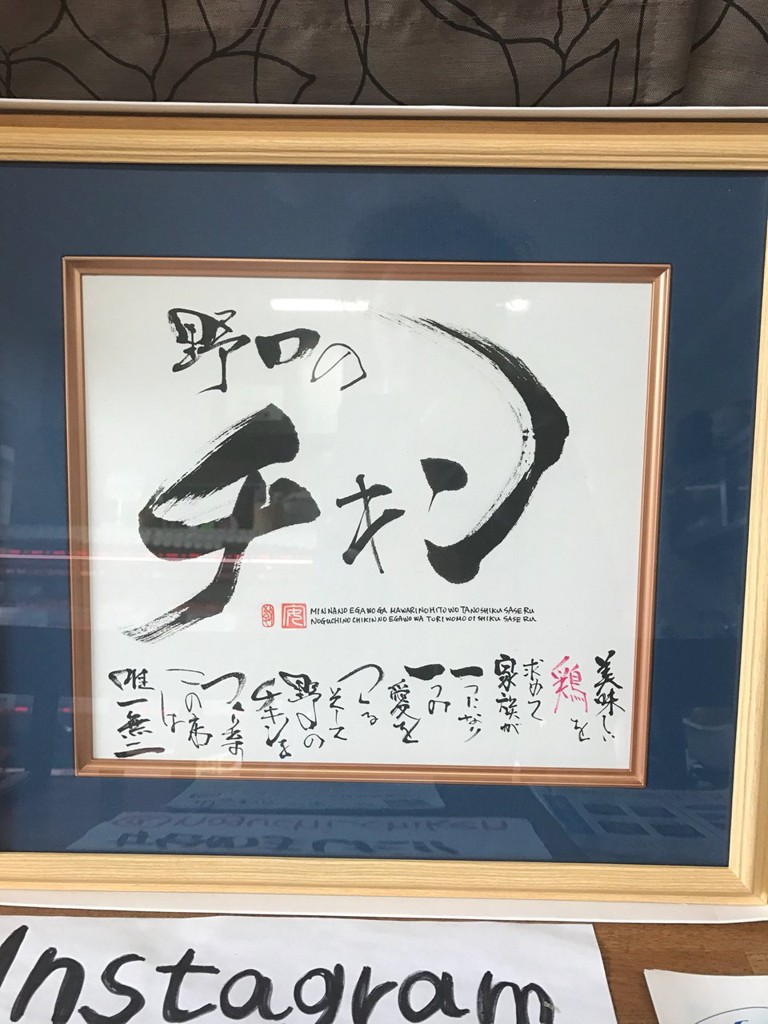 野口の
チキン
MINNANO EGAWO GA MAWARINO HITO WO TANOSHIKU SASERU
NOGUCHINO CHIKIN NO EGAWO WA TORI WO MO OISHIKU SASERU
美味しい
鶏を
求めて
家族が
一つになり
一つの
愛を
つくる
そして
野口の
チキンを
つくり出す
この店は
唯一無二
Instagram